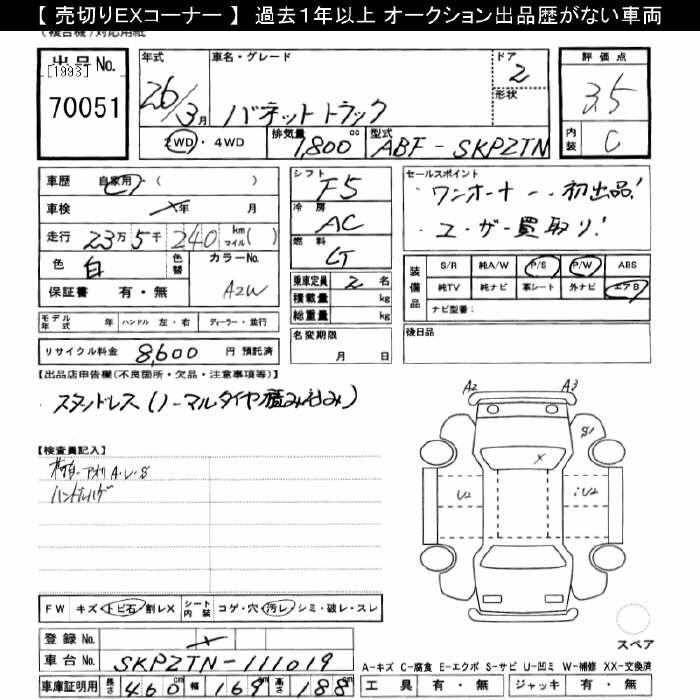 【 売切りEXコーナー 】 過去１年以上 オークション出品歴がない車両
出品 No.
[1993]
70051
年式 26/3月
車名・グレード バネットトラック
ドア 2
形状
2WD・4WD
排気量 1,800 cc
型式 ABF-SKP2TN
評価点 3.5
内装 C
車歴 自家用・( )
車検 ×年 月
走行 23万5千240 km マイル( )
色 白 色替
カラーNo. A2W
保証書 有・無
モデル年式 年 ハンドル 左・右 ディーラー・並行
リサイクル料金 8,600 円 預託済
シフト F5
冷房 AC
燃料
乗車定員 2 名
積載量 kg
総重量 kg
名変期限
月 日
セールスポイント
・ワンオーナー、初出品!
・ユーザー買取り!
装備品
S/R 純A/W P/S P/W ABS
純TV 純ナビ 革シート 外ナビ エアB
ナビ型番:
後日品
【出品店申告欄(不良箇所・欠品・注意事項等)】
・スタッドレス(ノーマルタイヤ積み込み)
【検査員記入】
アオリA・U・S
ハンドルハゲ
A2 A3
S1
X
U2 U2
スペア
FW キズ・トビ石・割レX シート内装 コゲ・穴・汚レ・シミ・破レ・スレ
登録 No. ×
車台 No. SKP2TN-111019
車庫証明用 長さ 460cm 幅 169cm 高さ 188cm
A-キズ C-腐食 E-エクボ S-サビ U-凹ミ W-補修 XX-交換済
工具 有・無 ジャッキ 有・無